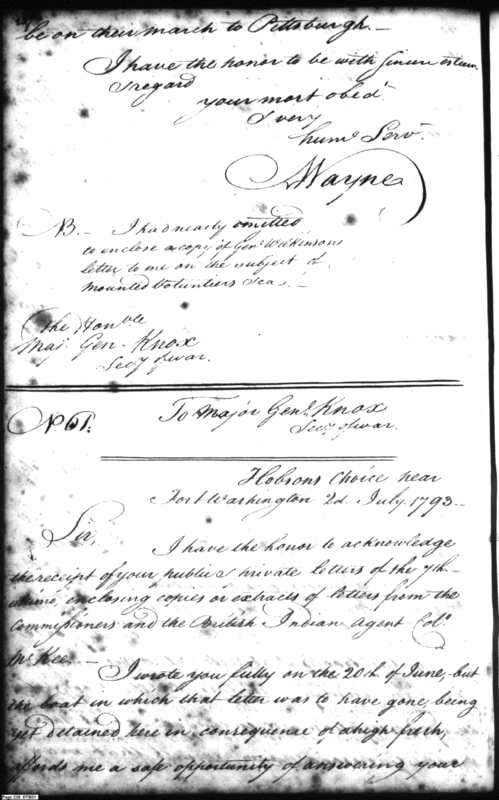 be on their march to Pittsburgh. —
I have the honor to be with sincere esteem
& regard
your most obed.t
& very
hum.e Serv.t
A Wayne
NB. — I had nearly omitted
to enclose a copy of Gen.l Wilkinsons
letter to me on the subject of
Mounted Volunteers &ca. —
The Hon.ble
Maj. Gen. Knox
Sec.y of war.
N.o 61.
To Major Gen.l Knox
Sec.y of war.
Hobsons Choice near
Fort Washington 2d. July. 1793. —
Sir,
I have the honor to acknowledge
the receipt of your public & private letters of the 7th
ultimo, enclosing copies or extracts of letters from the
Commissioners and the British Indian Agent Col.o
McKee. — I wrote you fully on the 20th. of June, but
the boat in which that letter was to have gone, being
yet detained here in consequence of a high fresh,
affords me a safe opportunity of answering your